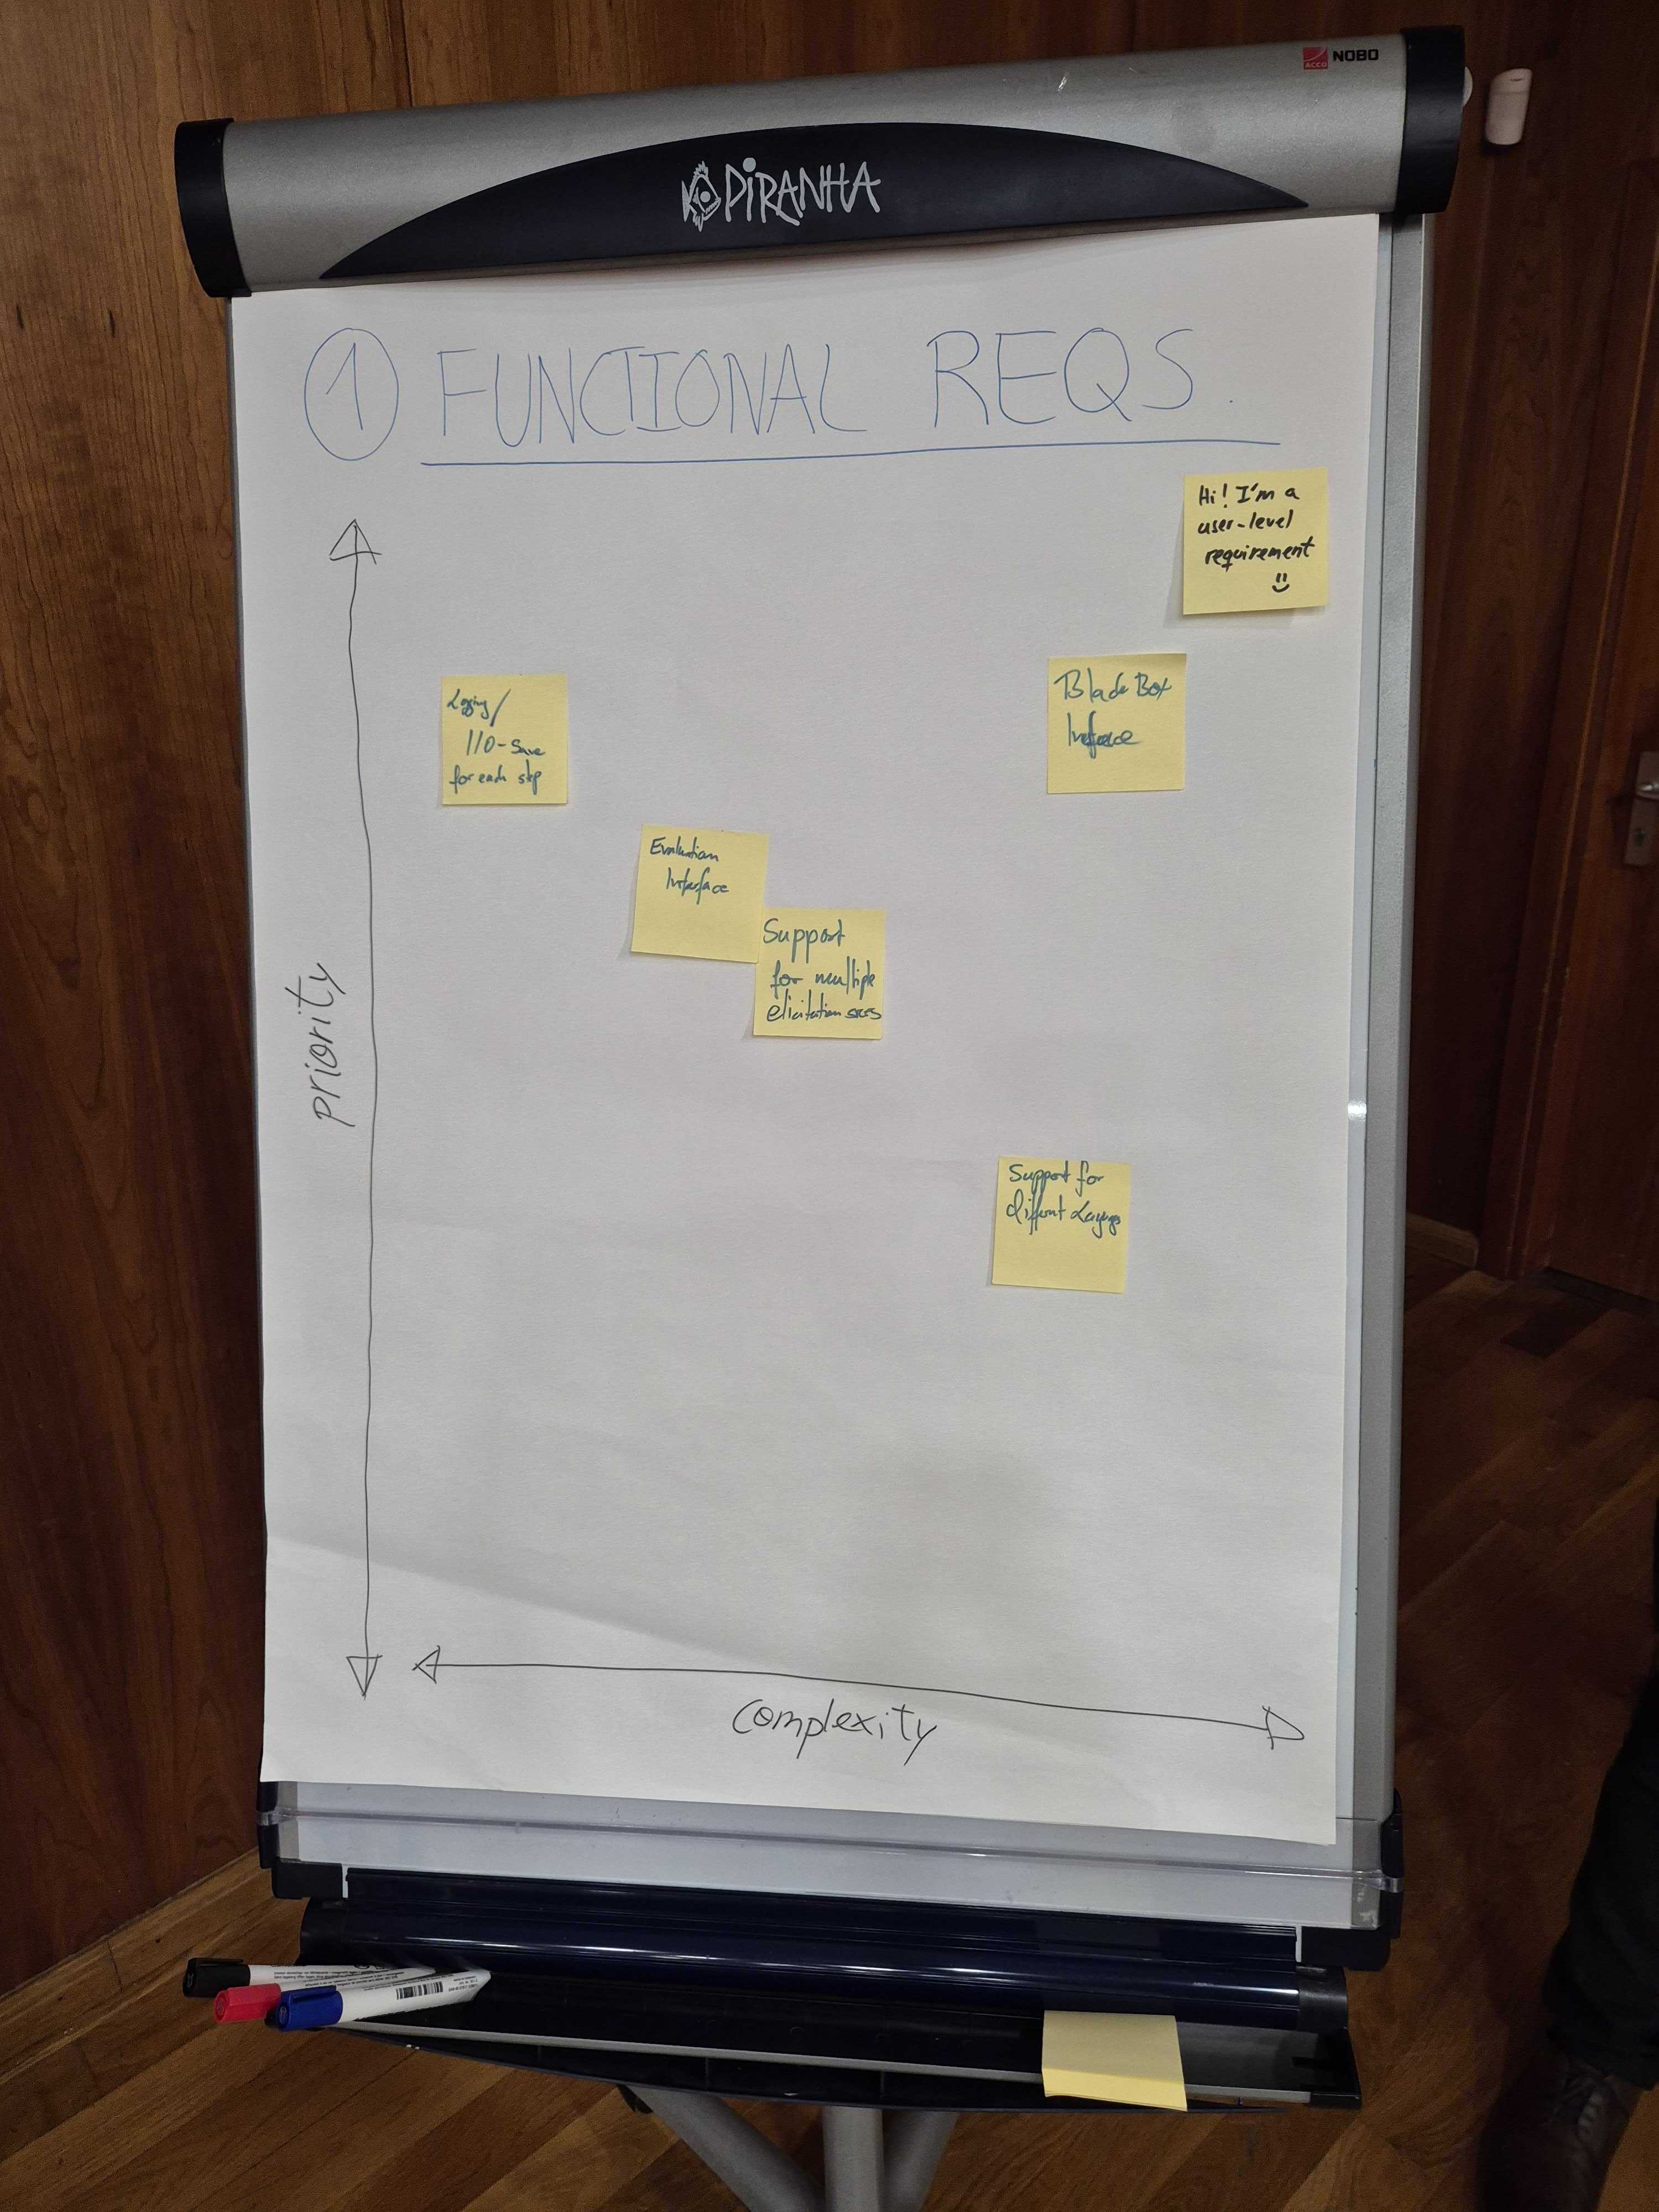 ACCO NOBO
PIRANHA
1 FUNCTIONAL REQS.
Hi! I'm a
user-level
requirement
Logging/
I/O-Save
for each step
Black Box
Interface
Evaluation
Interface
Support
for multiple
elicitation srcs
priority
Support for
different
complexity